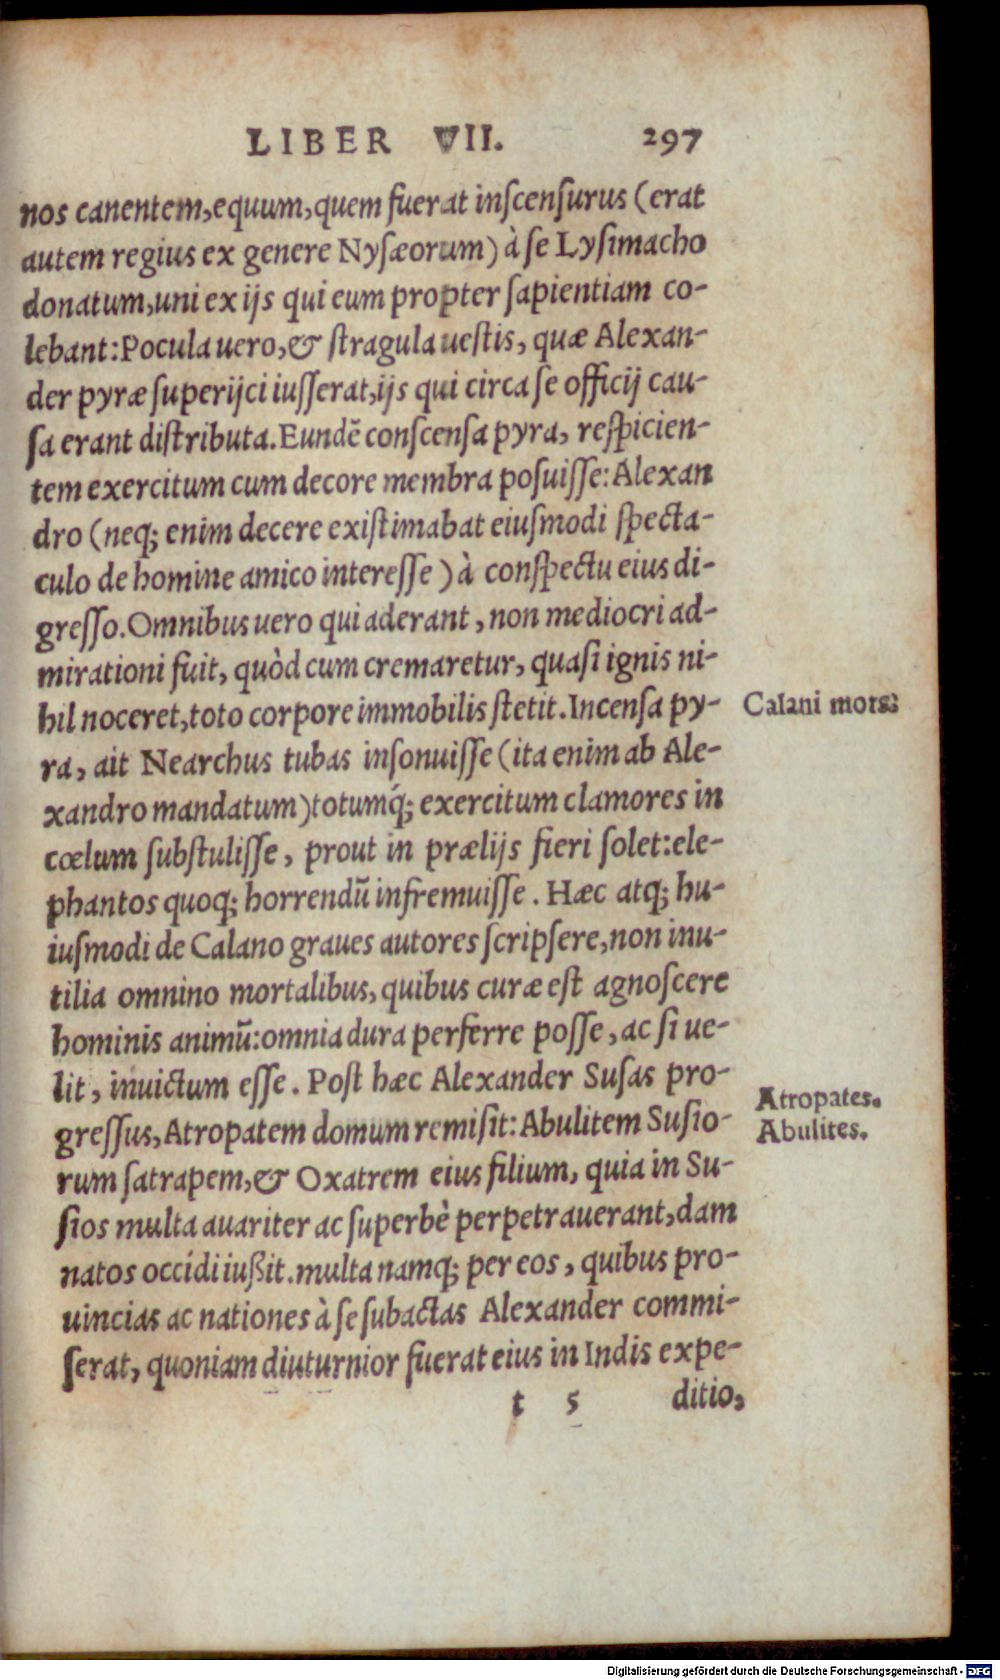 LIBER VII. 297
nos canentem, equum, quem fuerat inscensurus (erat
autem regius ex genere Nysæorum) à se Lysimacho
donatum, uni ex ijs qui eum propter sapientiam co-
lebant: Pocula uero, & stragula uestis, quæ Alexan-
der pyræ superijci iusserat, ijs qui circa se officij cau-
sa erant distributa. Eundē conscensa pyra, respicien-
tem exercitum cum decore membra posuisse: Alexan
dro (neq; enim decere existimabat eiusmodi specta-
culo de homine amico interesse) à conspectu eius di-
gresso. Omnibus uero qui aderant, non mediocri ad-
mirationi fuit, quòd cum cremaretur, quasi ignis ni-
hil noceret, toto corpore immobilis stetit. Incensa py-
Calani mors.
ra, ait Nearchus tubas insonuisse (ita enim ab Ale-
xandro mandatum) totumq́; exercitum clamores in
cœlum substulisse, prout in prælijs fieri solet: ele-
phantos quoq; horrendū infremuisse. Hæc atq; hu-
iusmodi de Calano graues autores scripsere, non inu-
tilia omnino mortalibus, quibus curæ est agnoscere
hominis animū: omnia dura perferre posse, ac si ue-
lit, inuictum esse. Post hæc Alexander Susas pro-
gressus, Atropatem domum remisit: Abulitem Susio-
Atropates.
Abulites.
rum satrapem, & Oxatrem eius filium, quia in Su-
sios multa auariter ac superbè perpetrauerant, dam
natos occídi iußit. multa namq; per eos, quibus pro-
uincias ac nationes à se subactas Alexander commi-
serat, quoniam diuturnior fuerat eius in Indis expe-
t 5 ditio,
Digitalisierung gefördert durch die Deutsche Forschungsgemeinschaft - DFG